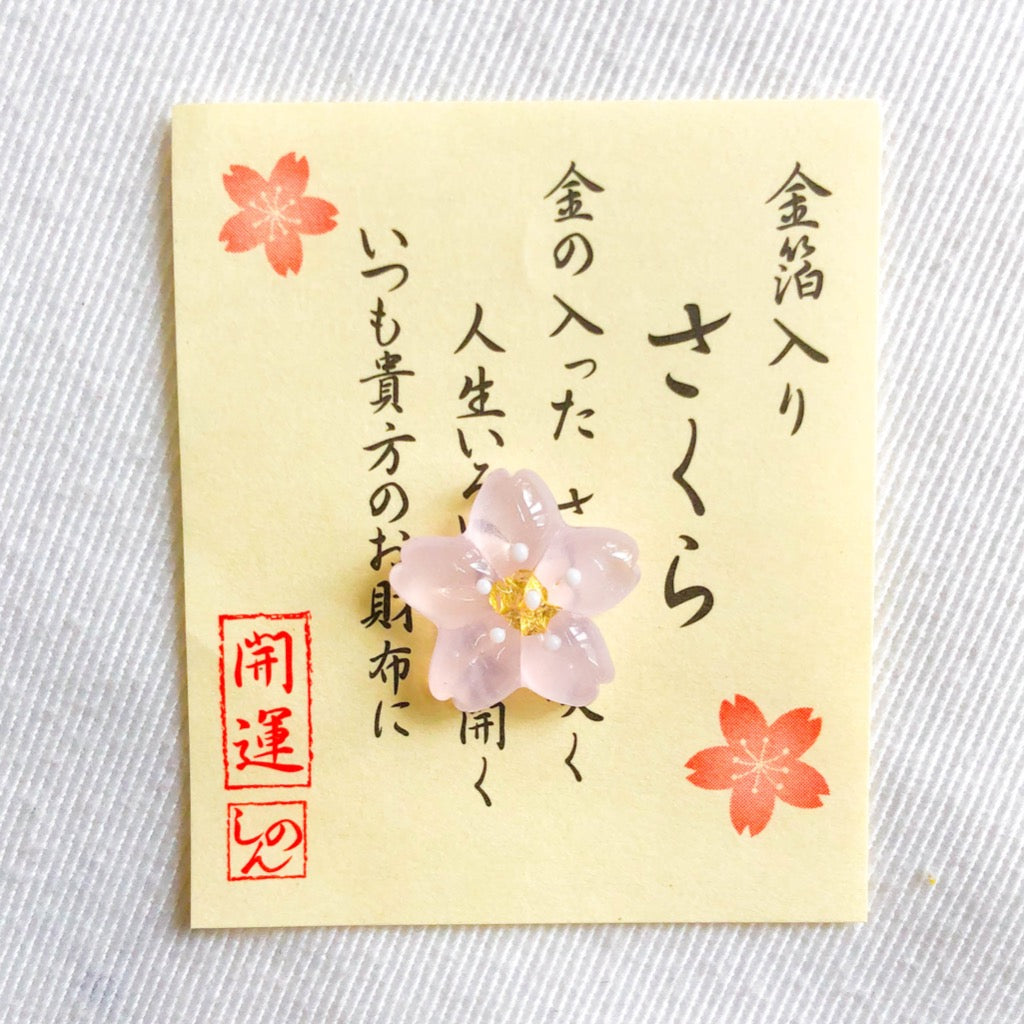 金箔入り
さくら
金の入った さ 咲く
人生いろ 開く
いつも貴方のお財布に
開運
しのん